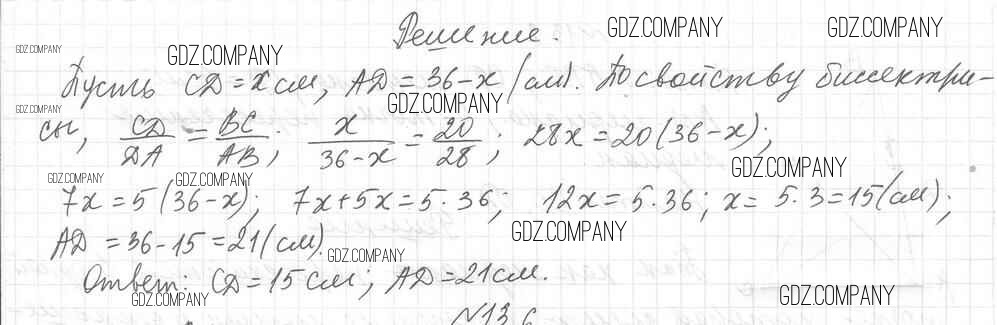 Решение.
Пусть CD = x см, AD = 36 - x (см). По свойству биссектри-
сы, CD/DA = BC/AB; x/(36-x) = 20/28; 28x = 20(36-x);
7x = 5(36-x); 7x+5x = 5·36; 12x = 5·36; x = 5·3 = 15(см);
AD = 36-15 = 21(см).
Ответ: CD = 15 см; AD = 21 см.
GDZ.COMPANY
GDZ.COMPANY
GDZ.COMPANY
GDZ.COMPANY
GDZ.COMPANY
GDZ.COMPANY
GDZ.COMPANY
GDZ.COMPANY
GDZ.COMPANY
GDZ.COMPANY
GDZ.COMPANY
GDZ.COMPANY
GDZ.COMPANY